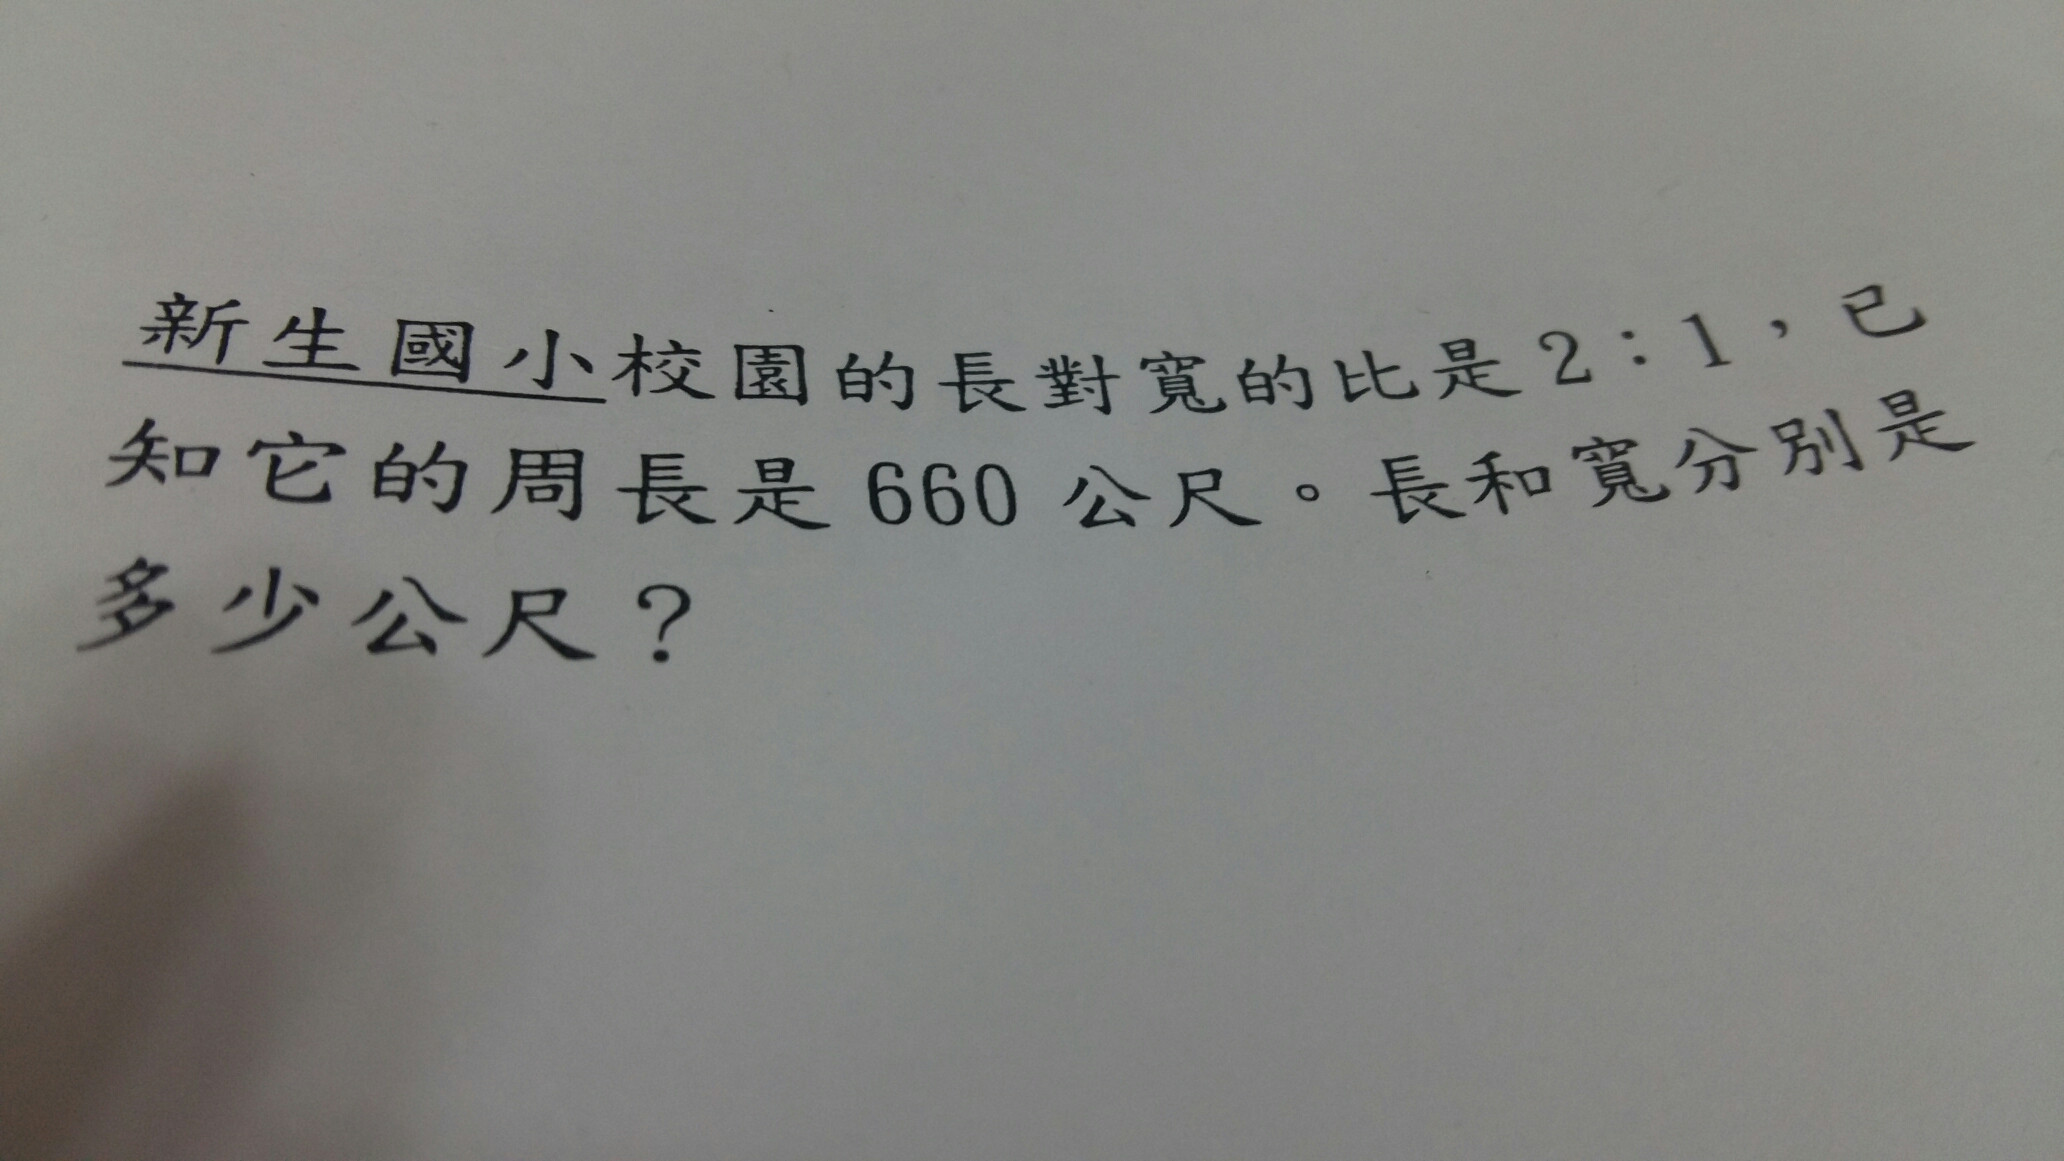 新生國小校園的長對寬的比是2：1，已
知它的周長是660公尺。長和寬分別是
多少公尺？